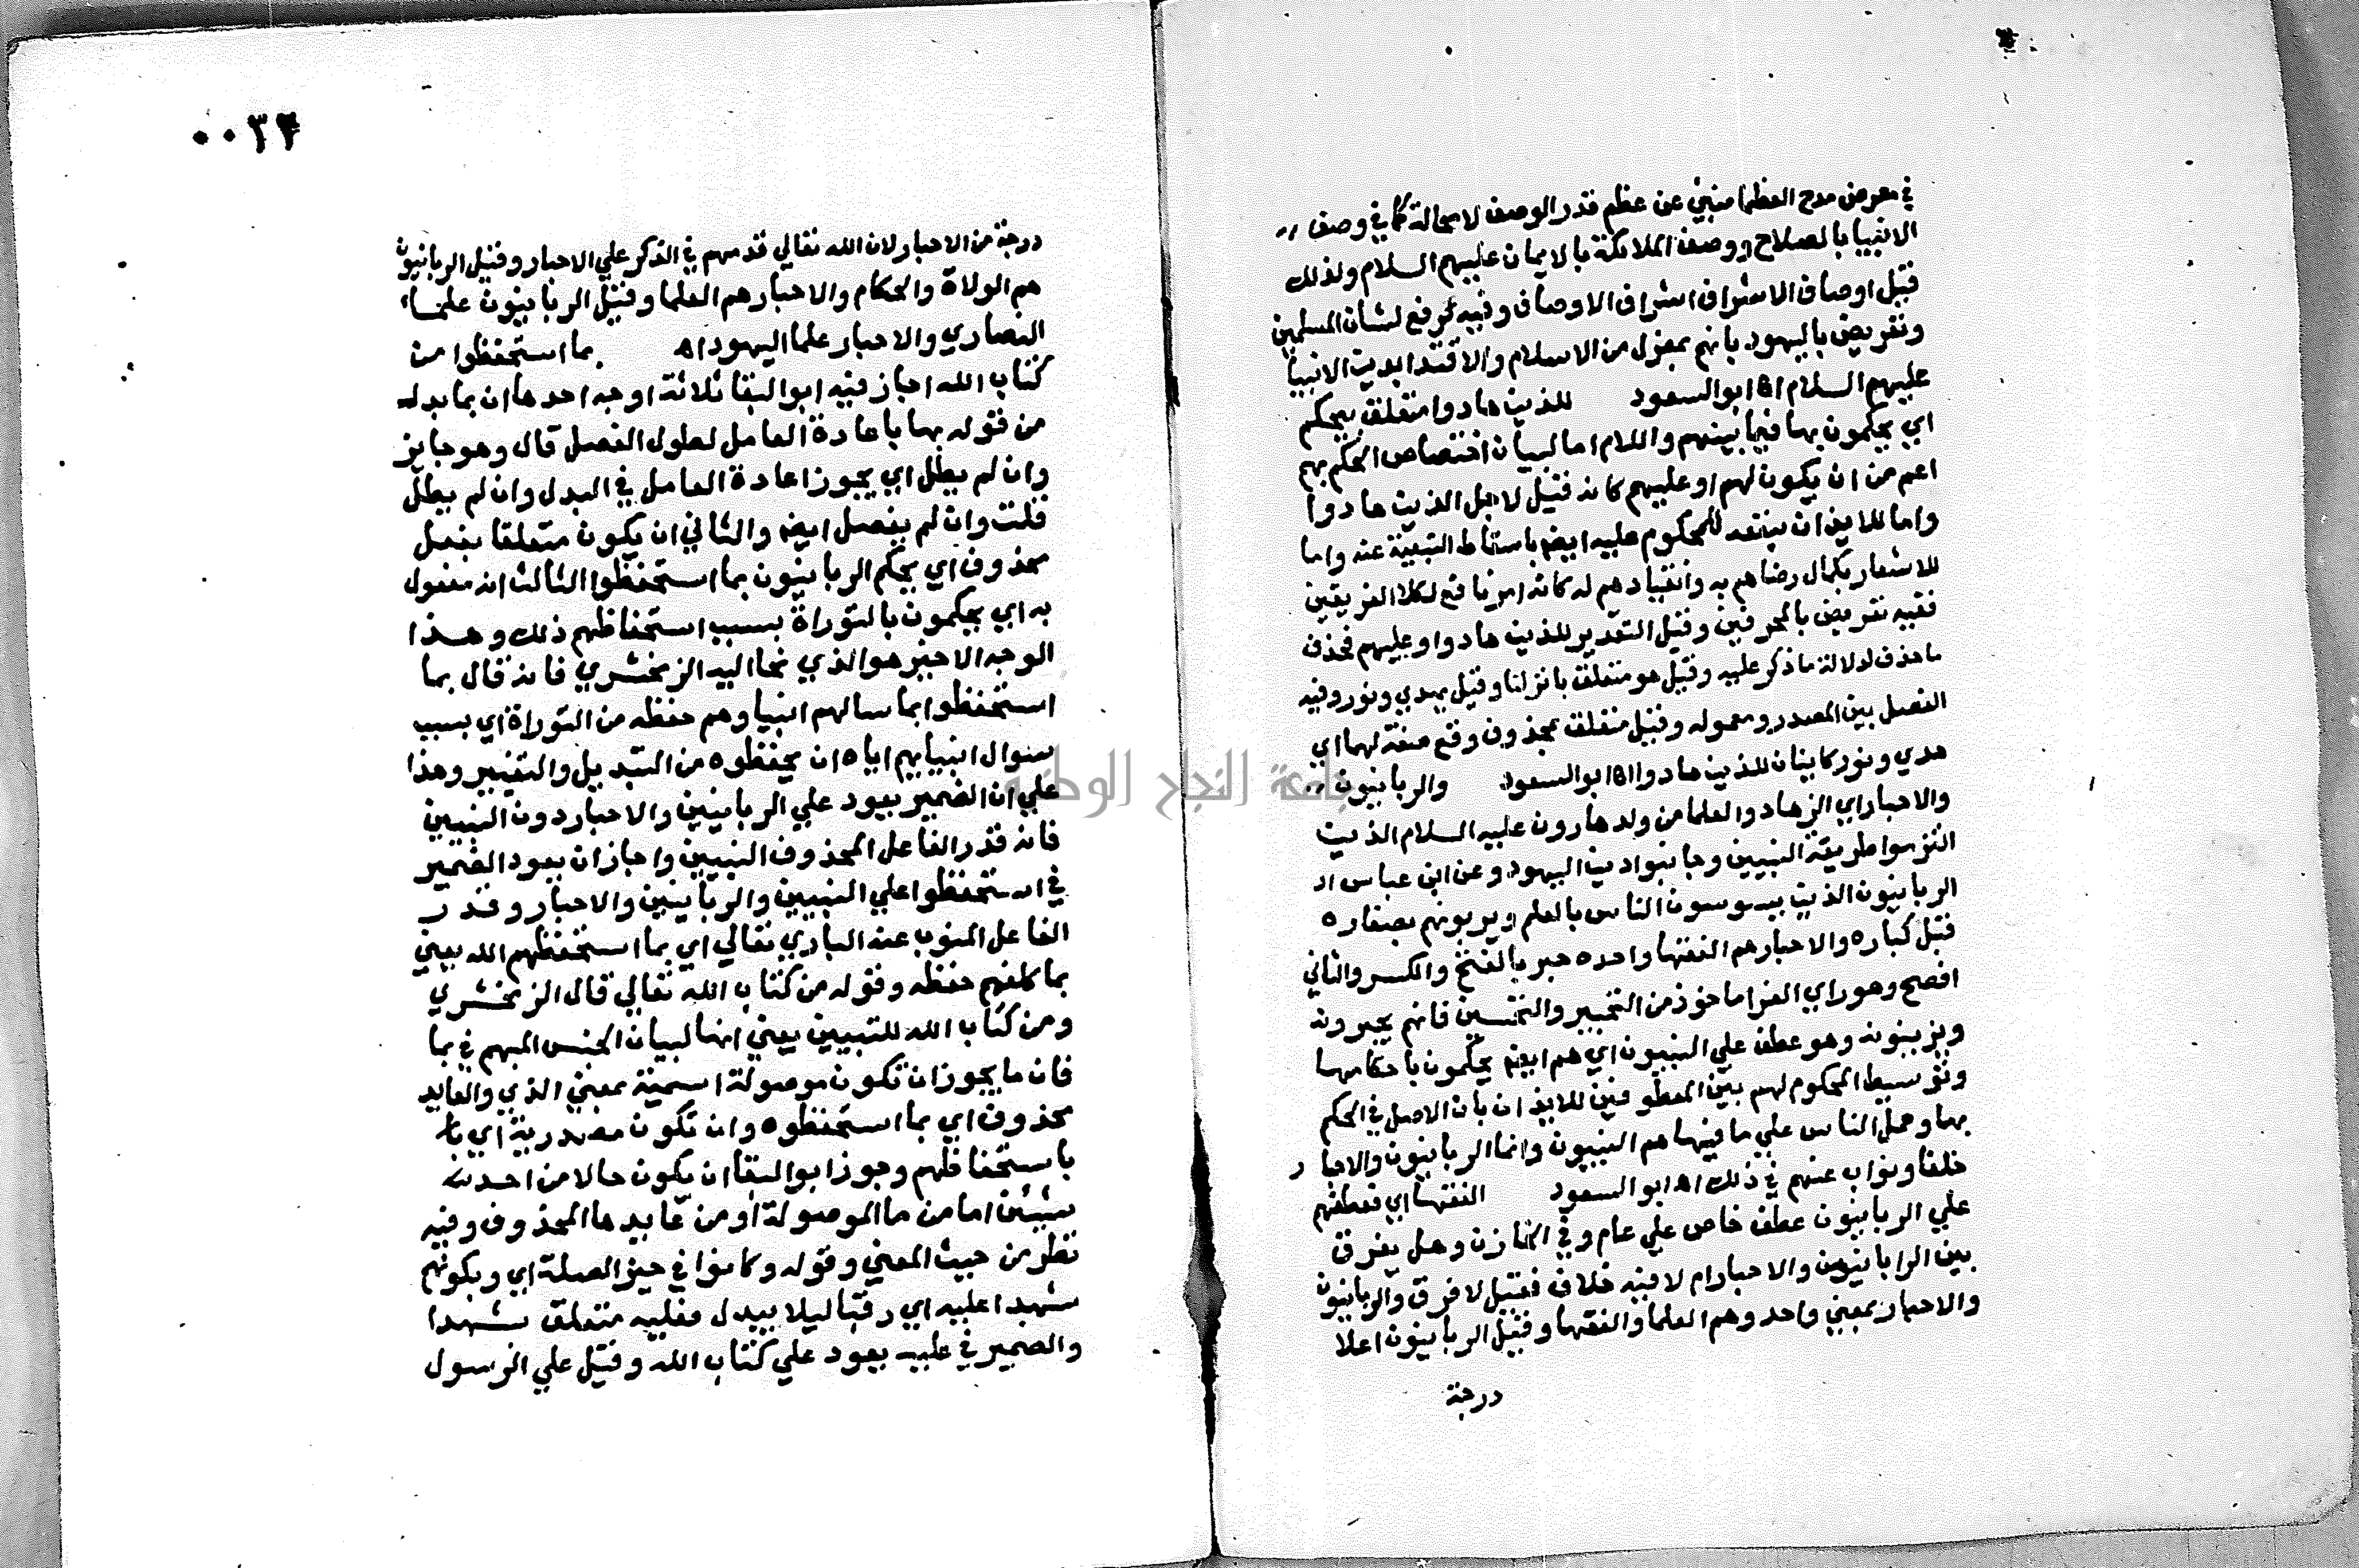 في معرض مدح العظما منبئ عن عظم قدر الوصف لا محالة كما في وصف
الانبيا بالصلاح ووصف الملائكة بالايمان عليهم السلام ولذلك
قيل اوصاف الاشراف اشراف الاوصاف وفيه رفع لشان المسلمين
وتعريض باليهود بانهم بمعزل من الاسلام والاقتدا بدين الانبيا
عليهم السلام اه ابو السعود للذين هادوا متعلق بيحكم
اي يحكمون بها فيما بينهم واللام اما لبيان اختصاص الحكم بهم
اعم من ان يكون لهم او عليهم كانه قيل لاجل الذين هادوا
واما للايذان بنفعه للمحكوم عليه ايضا باسقاط التبعة عنه واما
للاشعار بكمال رضاهم به وانقيادهم له كانه امر نافع لكلا الفريقين
ففيه تعريض بالمحرفين وقيل التقدير للذين هادوا وعليهم فحذف
ما حذف لدلالة ما ذكر عليه وقيل هو متعلق بانزلنا وقيل بهدي ونور وفيه
الفصل بين المصدر ومعموله وقيل متعلق بمحذوف وقع صفة لهما اي
هدي ونور كاينان للذين هادوا اه ابو السعود والربانيون
والاحبار اي الزهاد والعلما من ولد هارون عليه السلام الذين
التزموا طريقة النبيين وجانبوا دين اليهود وعن ابن عباس ان
الربانيون الذين يسوسون الناس بالعلم ويربونهم بصغاره
قبل كباره والاحبار هم الفقها واحده حبر بالفتح والكسر والثاني
افصح وهو راي الفرا ماخوذ من التحبير والتحسين فانهم يحبرونه
ويزينونه وهو عطف علي النبيون اي هم ايضا يحكمون باحكامها
وتوسيط المحكوم لهم بين المعطوفين للايذان بان الاصل في الحكم
بها وحمل الناس علي ما فيها هم النبيون وانما الربانيون والاحبار
خلفا ونواب عنهم في ذلك اه ابو السعود الفقها اي فعطفهم
علي الربانيون عطف خاص علي عام وفي الخازن وهل يفرق
بين الربانيون والاحبار ام لا فيه خلاف فقيل لا فرق والربانيون
والاحبار بمعني واحد وهم العلما والفقها وقيل الربانيون اعلا
درجة
٠٠٣٤
درجة من الاحبار لان الله تعالي قدمهم في الذكر علي الاحبار وقيل الربانيون
هم الولاة والحكام والاحبار هم العلما وقيل الربانيون علماء
النصاري والاحبار علما اليهود اه بما استحفظوا من
كتاب الله اجاز فيه ابو البقا ثلاثة اوجه احدها ان بما بدل
من قوله بها باعادة العامل لطول الفصل قال وهو جايز
وان لم يطل اي يجوز اعادة العامل في البدل وان لم يطل
قلت وان لم يفصل ايضا والثاني ان يكون متعلقا بفعل
محذوف اي يحكم الربانيون بما استحفظوا الثالث انه مفعول
به اي يحكمون بالتوراة بسبب استحفاظهم ذلك وهذا
الوجه الاخير هو الذي نحا اليه الزمخشري فانه قال بما
استحفظوا بما سالهم انبياوهم حفظه من التوراة اي بسبب
سئوال انبيايهم اياه ان يحفظوه من التبديل والتغيير وهذا
علي ان الضمير يعود علي الربانيين والاحبار دون النبيين
فانه قدر الفاعل المحذوف النبيين واجاز ان يعود الضمير
في استحفظوا علي النبيين والربانيين والاحبار وقدر
الفاعل المنوب عنه الباري تعالي اي بما استحفظهم الله يعني
بما كلفهم حفظه وقوله من كتاب الله تعالي قال الزمخشري
ومن كتاب الله للتبيين يعني انها لبيان الجنس المبهم في بما
فان ما يجوز ان تكون موصولة اسمية بمعني الذي والعايد
محذوف اي بما استحفظوه وان تكون مصدرية اي
باستحفاظهم وجوز ابو البقا ان يكون حالا من احد
شيئين اما من ما الموصولة او من عايدها المحذوف وفيه
نظر من حيث المعني وقوله وكانوا في حيز الصلة اي وبكونهم
شهدا عليه اي رقبا ليلا يبدل فعليه متعلق بشهدا
والضمير في عليه يعود علي كتاب الله وقيل علي الرسول
جامعة النجاح الوطنية